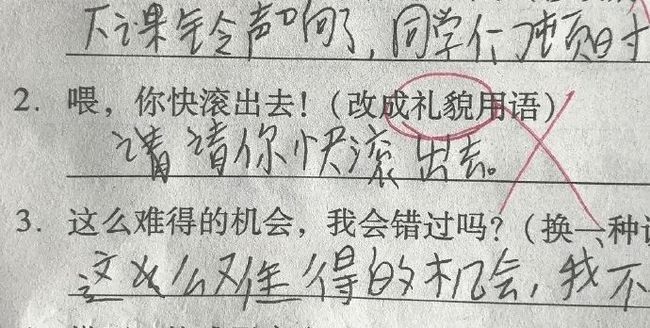 下课铃声响了，同学们顿时
2. 喂，你快滚出去！（改成礼貌用语）
请请你快滚出去。
3. 这么难得的机会，我会错过吗？（换一种
这么难得的机会，我不